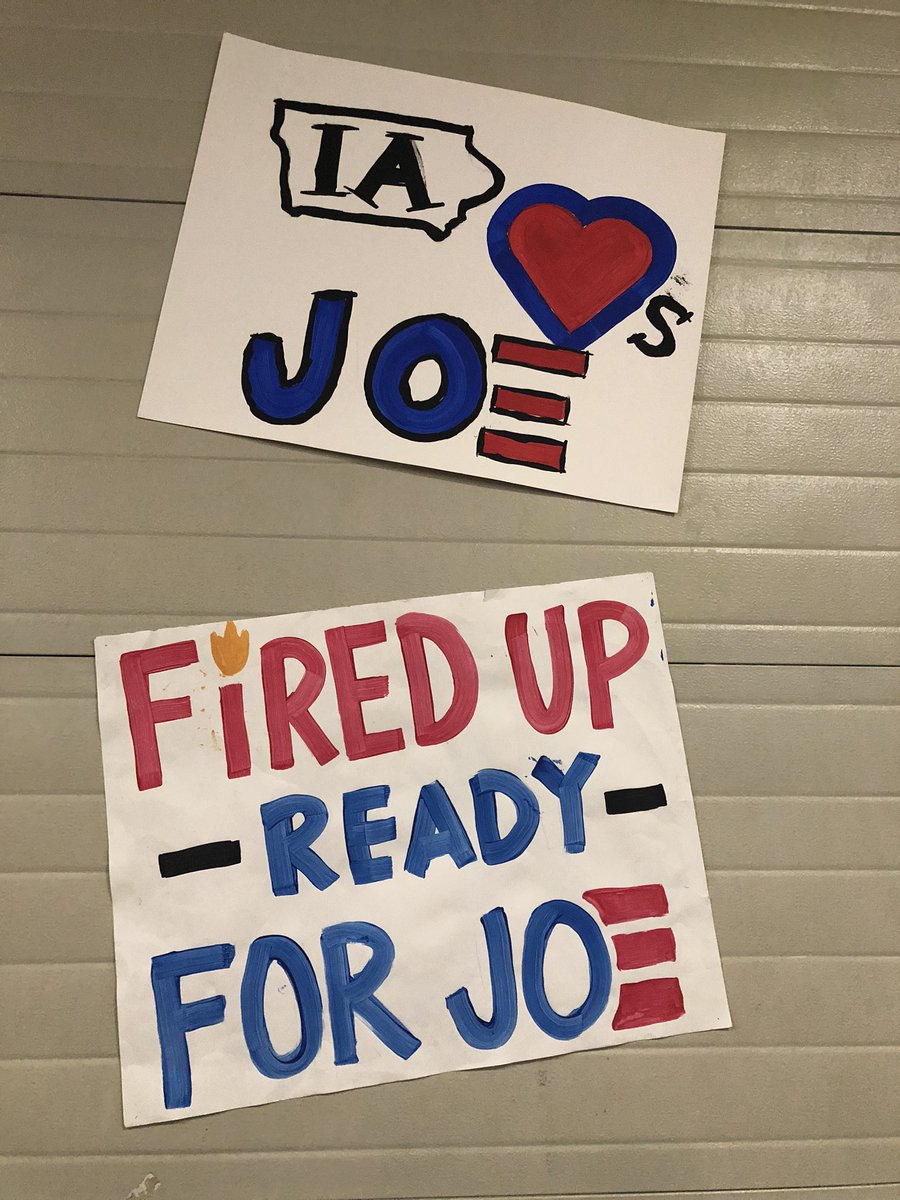 IA
s
JOE
FiRED UP
- READY -
FOR JOE